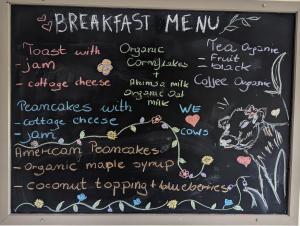 BREAKFAST MENU
Toast with
jam
- cottage cheese
Peancakes with
- cottage cheese
- jam
American Peancakes
- organic maple syrup
- coconut topping + blueberries
Organic
Cornflakes
+
milk
Organic Oat
milk
Tea Organic
- Fruit
- black
Coffee Organic
WE
COWS